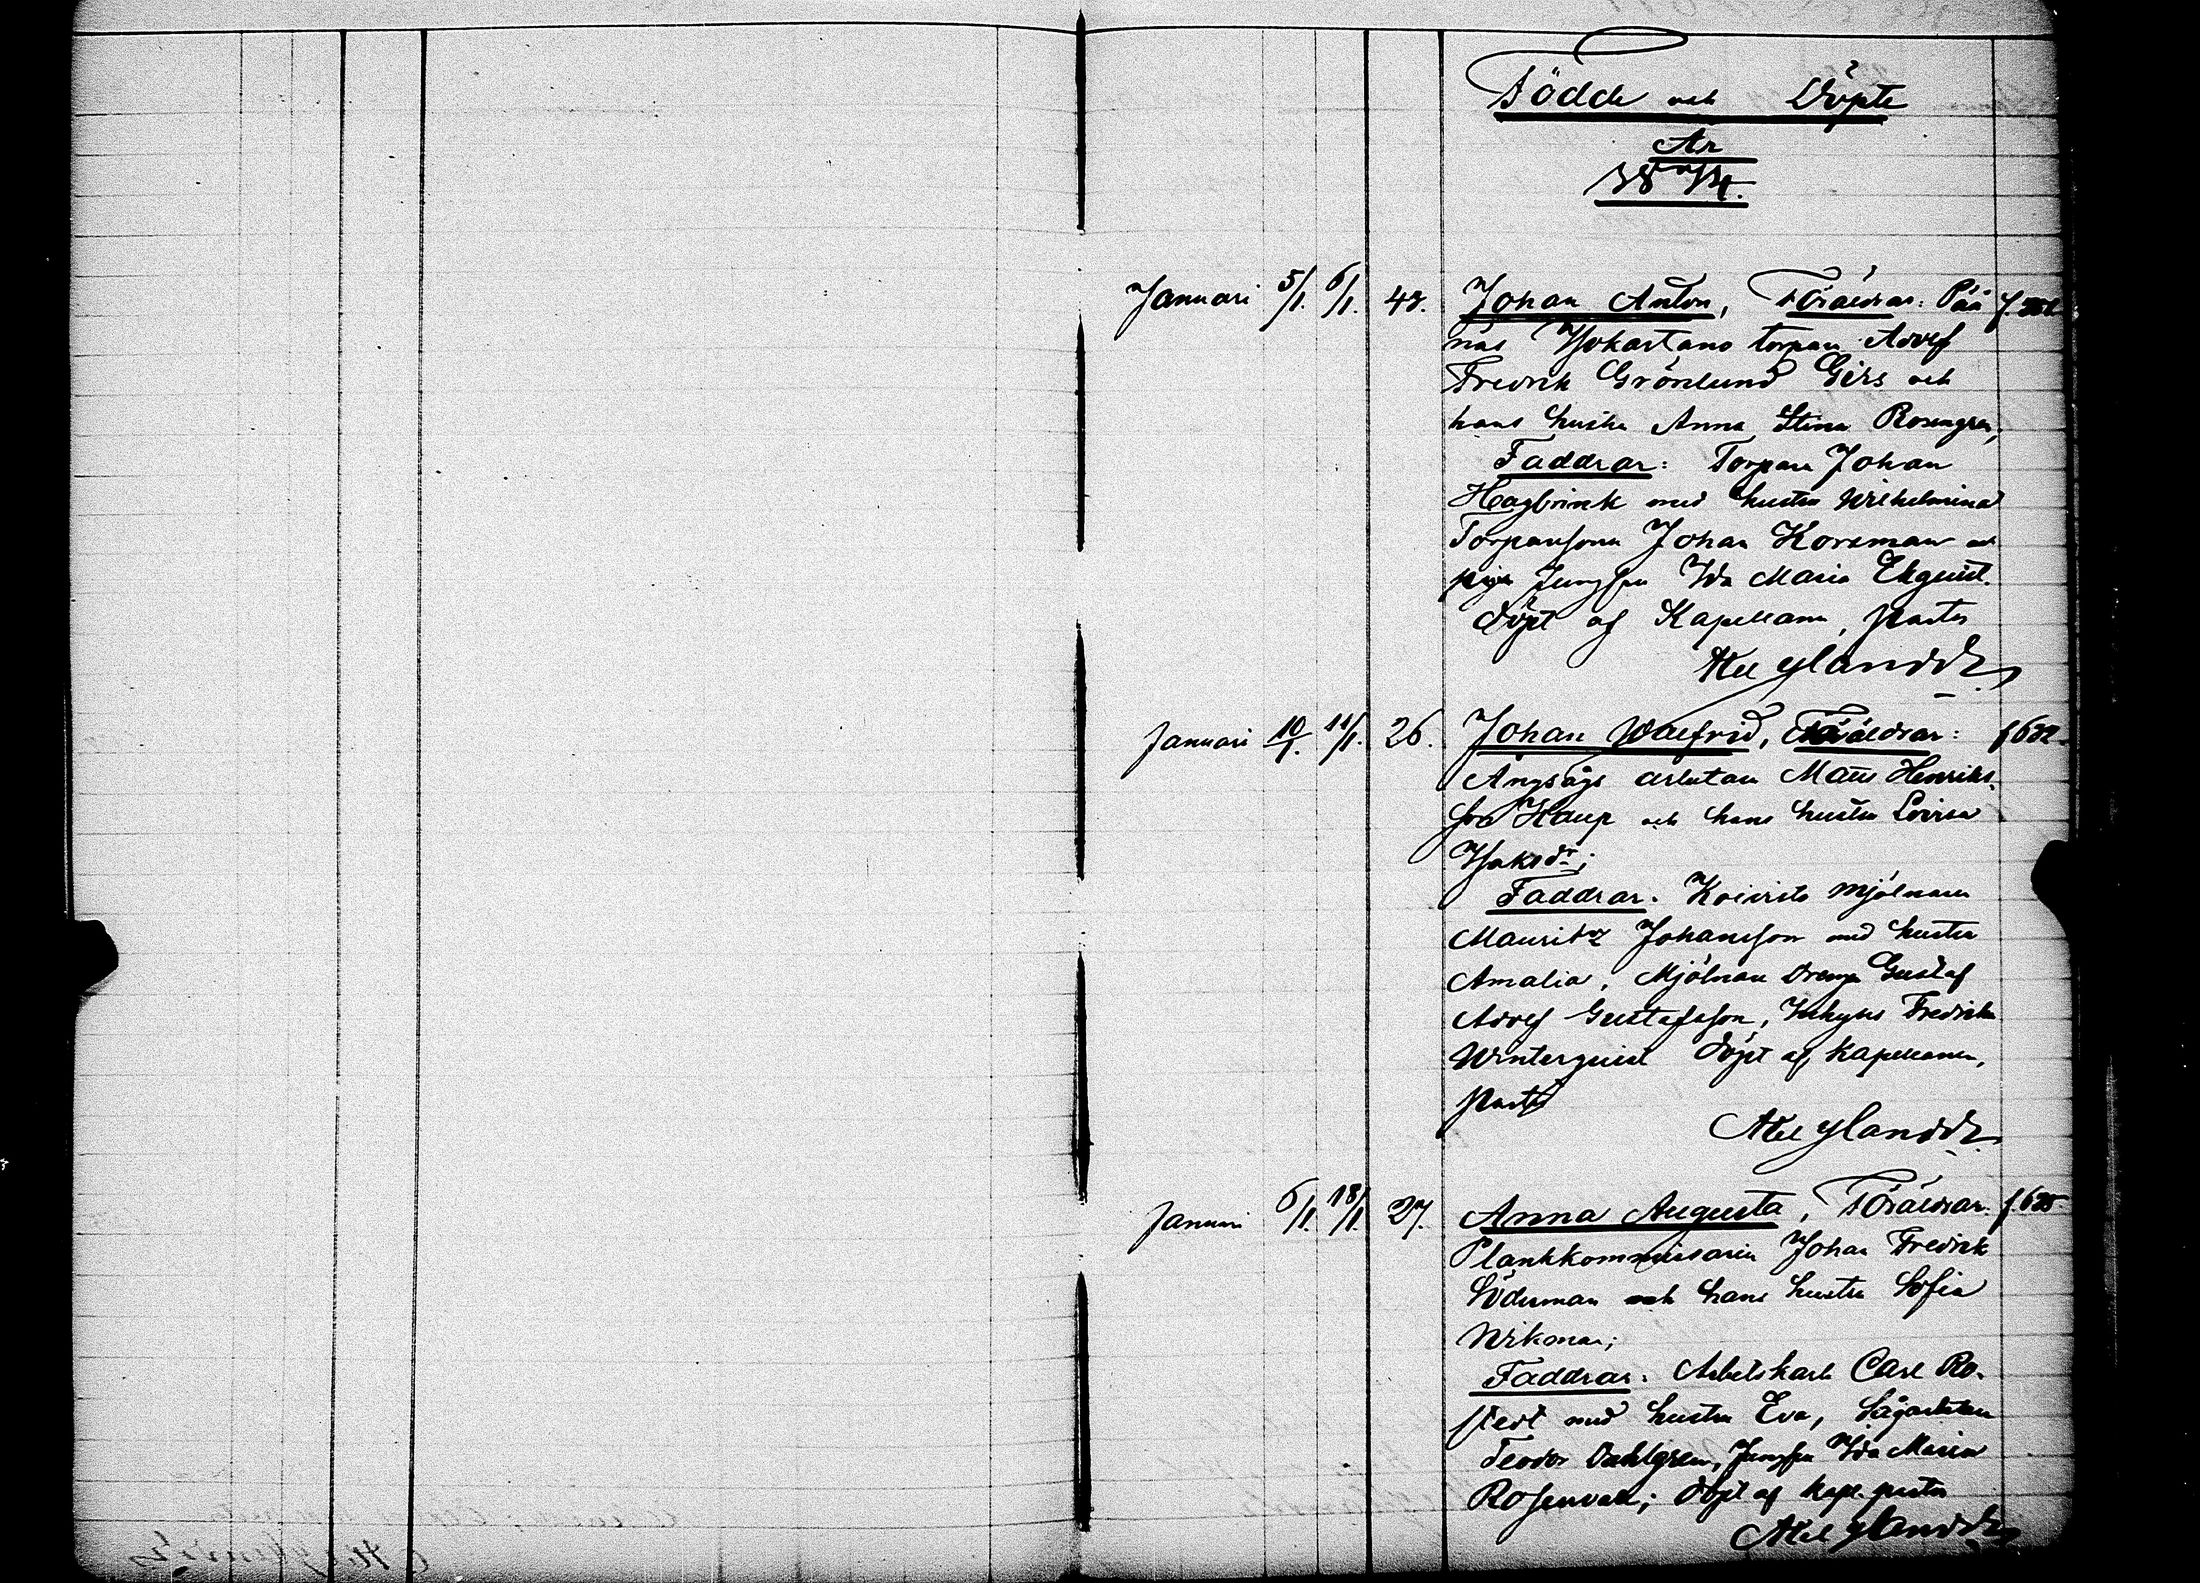 Födde och Döpte
År
1874.
Januari 5/1. 6/1. 43. Johan Anton, Föräldrar: Påä
näs Isokartano torpare Adolf
Fredrik Grönlund Gers och
hans hustru Anna Stina Rosengren,
Faddrar: Torpare Johan
Hagbrink med hustru Wilhelmina
Torparesonen Johan Korsman och
pigan Jungfru Ida Maria Ekquist.
döpt af Kapellanen, pastor
Axel Ylander
Januari 10/1. 11/1. 26. Johan Walfrid, Föräldrar: f 632.
Ångsågs arbetaren Matts Henriks-
son Haup och hans hustru Lovisa
Isaksdr;
Faddrar. Koivisto mjölnaren
Mauritz Johansson med hustru
Amalia, Mjölnare Dreng Gustaf
Adolf Gustafsson, Inhyses Fredrika
Winterquist döpt af Kapellanen,
pastor
Axel Ylander
Januari 6/1. 18/1. 27. Anna Augusta, Föräldrar. f. 635.
Plankkommissarien Johan Fredrik
Söderman och hans hustru Sofia
Wikman;
Faddrar: Arbetskarl Carl Ro-
stedt med hustru Eva, Sågarbetaren
Teodor Dahlgren, Jungfru Ida Maria
Rosenvall; döpt af kapl. pastor
Axel Ylander